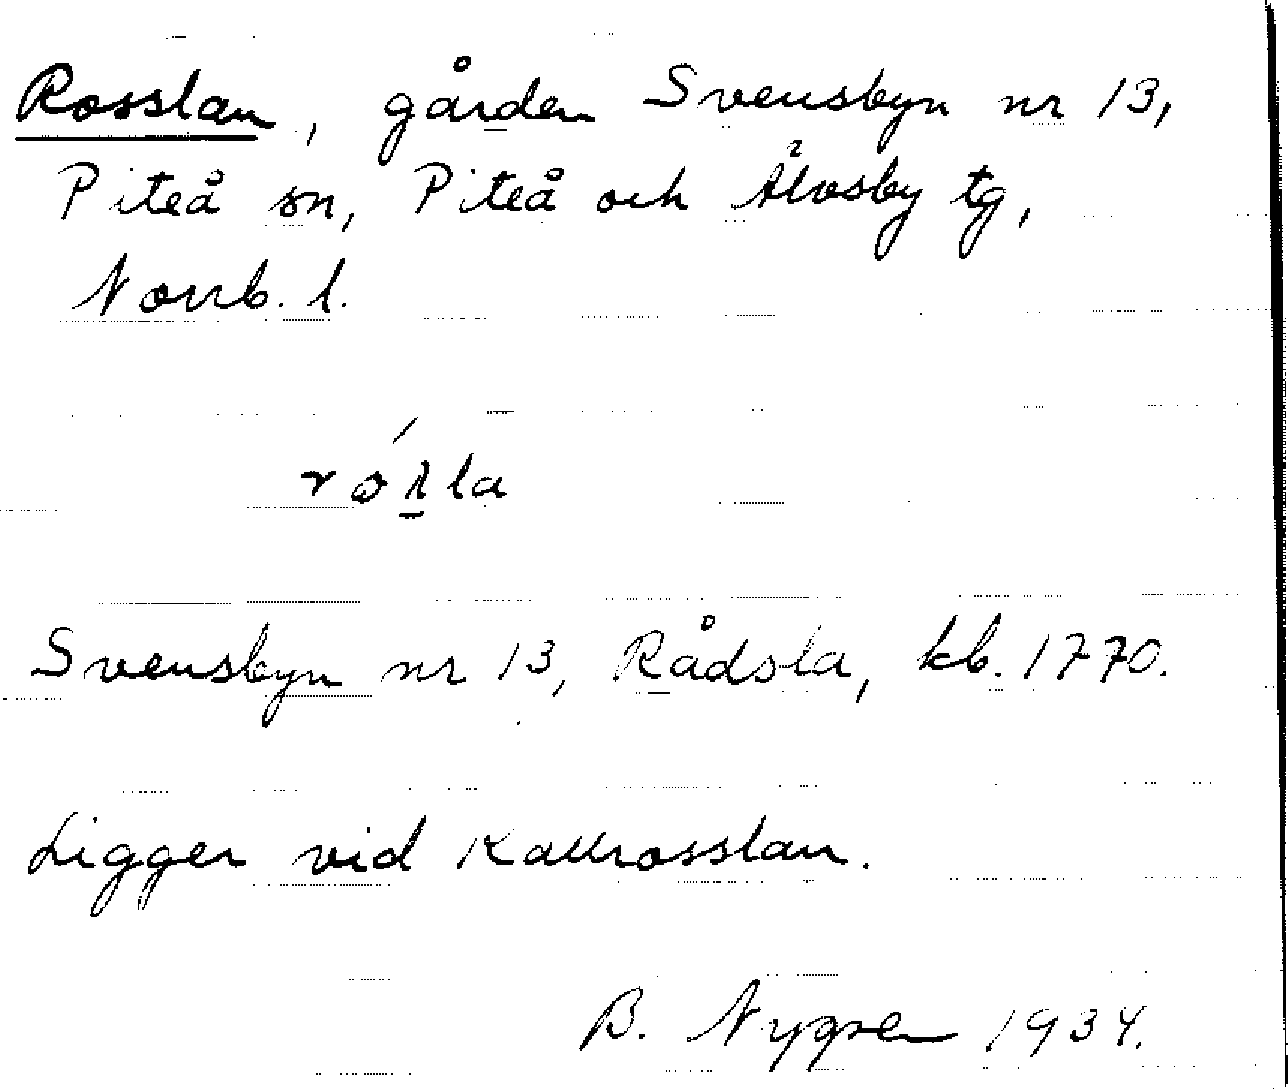 Rosslan, gården Svensbyn nr 13,
Piteå sn, Piteå och Älvsby tg,
Norrb. l.
Svensbyn nr 13, Rådsla, kb. 1770.
Ligger vid Kallrosslan.
B. Nygren 1934.